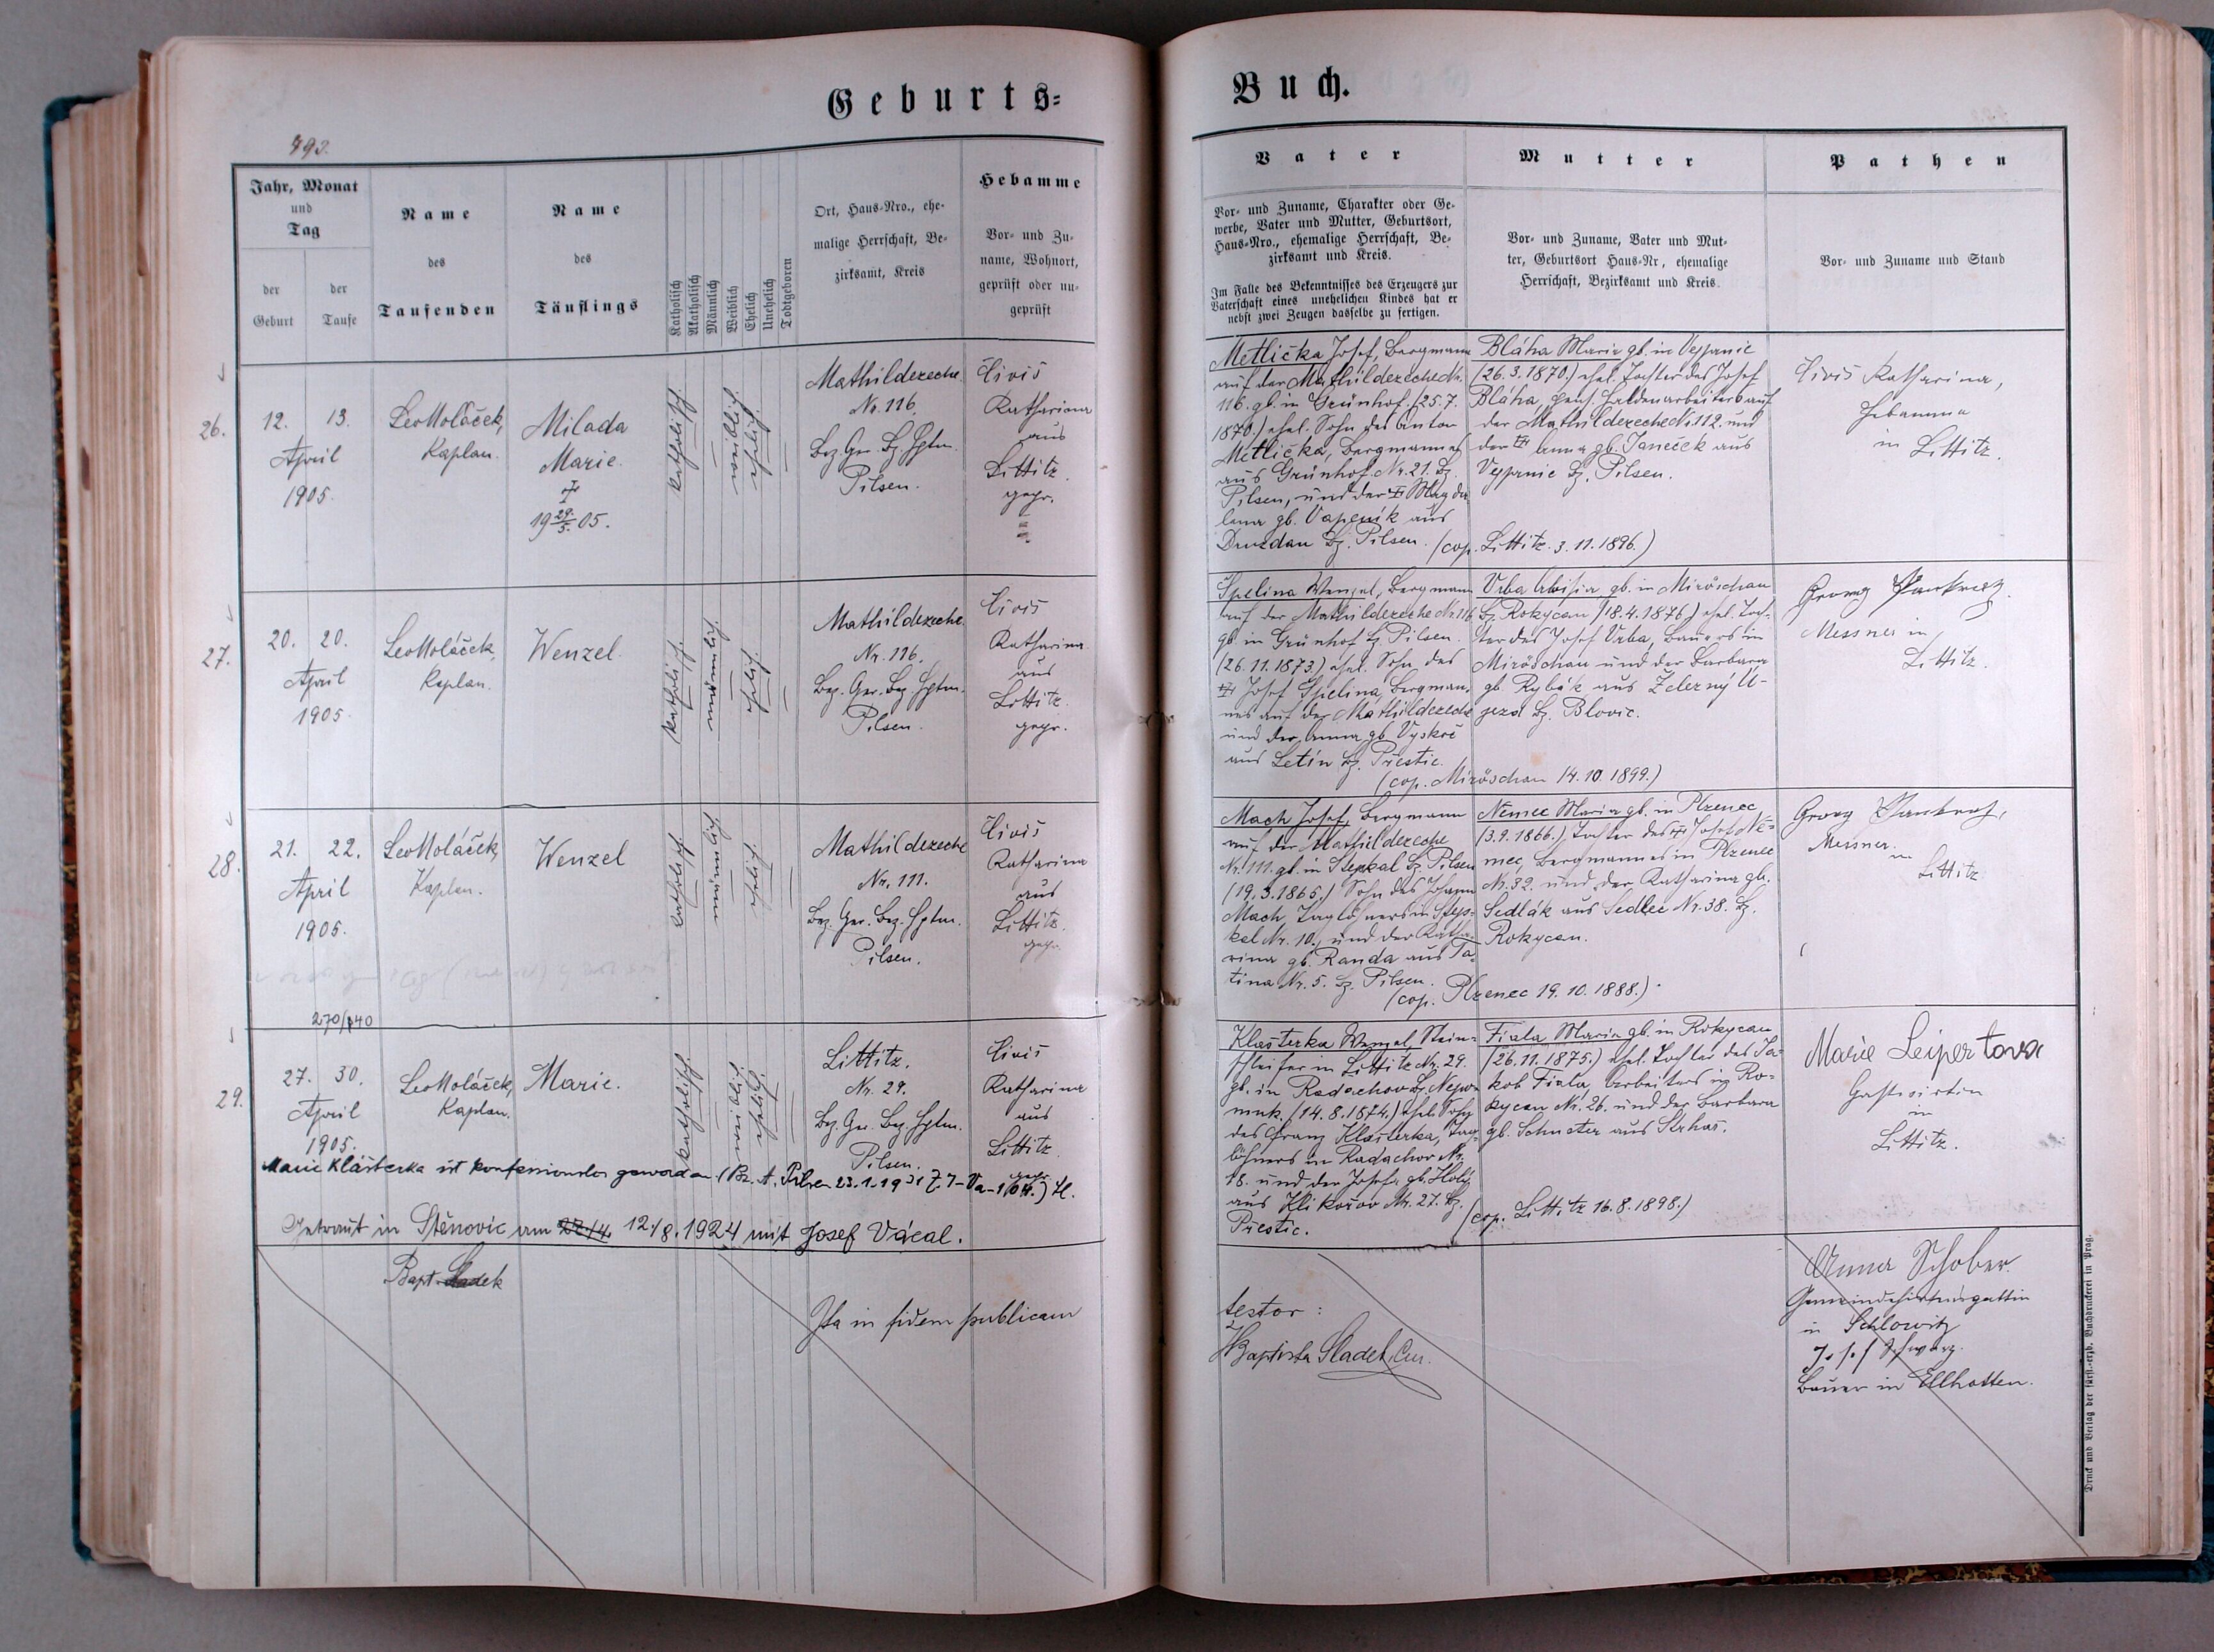 Geburts-
Buch.
493.
Jahr, Monat
und
Tag
der
Geburt
der
Taufe
Name
des
Taufenden
Name
des
Täuflings
Katholisch
Akatholisch
Männlich
Weiblich
Ehelich
Unehelich
Todtgeboren
Ort, Haus-Nro., ehe-
malige Herrschaft, Be-
zirksamt, Kreis
Hebamme
Vor- und Zu-
name, Wohnort,
geprüft oder un-
geprüft
Vater
Vor- und Zuname, Charakter oder Ge-
werbe, Vater und Mutter, Geburtsort,
Haus-Nro., ehemalige Herrschaft, Be-
zirksamt und Kreis.
Im Falle des Bekenntnisses des Erzeugers zur
Vaterschaft eines unehelichen Kindes hat er
nebst zwei Zeugen dasselbe zu fertigen.
Mutter
Vor- und Zuname, Vater und Mut-
ter, Geburtsort Haus-Nr, ehemalige
Herrschaft, Bezirksamt und Kreis.
Pathen
Vor- und Zuname und Stand
26.
12. 13.
April
1905.
Leo Moláček,
Kaplan.
Milada
Marie.
†
19 29/5. 05.
katholisch
weiblich
ehelich
Mathildezeche
Nr. 116.
Bez. Ger. Bz. Hptm.
Pilsen.
Civiš
Katharina
aus
Littitz.
gepr.
Metlička Josef, Bergmann
auf der Mathildezeche Nr.
116. gb. in Grünhof. (25.7.
1870.) ehel. Sohn des Anton
Metlička, Bergmannes
aus Grünhof Nr. 21. Bz.
Pilsen, und der † Magda
lena gb. Vapeník aus
Druzdau Bz. Pilsen. (cop. Littitz. 3.11.1896.)
Bláha Marie gb. in Vejprnic
(26.3.1870.) ehel. Tochter des Josef
Bláha, pens. Haldenarbeiters auf
der Mathildezeche Nr. 112. und
der † Anna gb. Janeček aus
Vejprnic Bz. Pilsen.
Civiš Katharina,
Hebamme
in Littitz.
27.
20. 20.
April
1905.
Leo Moláček,
Kaplan.
Wenzel.
katholisch.
männlich.
ehelich.
Mathildezeche
Nr. 116.
Bez. Ger. Bez. Hptm.
Pilsen.
Civiš
Katharina
aus
Littitz.
gepr.
Spelina Wenzel, Bergmann
auf der Mathildezeche Nr. 116
gb. in Grünhof Bz. Pilsen.
(26.11.1873.) ehel. Sohn des
† Josef Spelina, Bergman-
nes auf der Mathildezeche
und der Anna gb. Vyskoč
aus Letín Bz. Přestic.
(cop. Miröschau 14.10.1899.)
Vrba Aloisia gb. in Miröschau
Bz. Rokycan (18.4.1876.) ehel. Toch-
ter des Josef Vrba, Bauers in
Miröschau und der Barbara
gb. Rybák aus Železný Ú-
jezd Bz. Blovic.
Georg Pankratz
Messner in
Littitz.
28.
21. 22.
April
1905.
270/140
Leo Moláček,
Kaplan.
Wenzel
katholisch.
männlich
ehelich.
Mathildezeche
Nr. 111.
Bez. Ger. Bez. Hptm.
Pilsen.
Civiš
Katharina
aus
Littitz.
gepr.
Mach Josef, Bergmann
auf der Mathildezeche
Nr. 111. gb. in Stepkal Bz. Pilsen
(19.3.1865.) Sohn des Johann
Mach, Taglöhners in Step-
kal Nr. 10. und der Katha-
rina gb. Randa aus Ta-
tina Nr. 5. Bz. Pilsen.
(cop. Plzenec 19.10.1888.)
Němec Maria gb. in Plzenec,
(3.9.1866.) Tochter des † Josef Ně-
mec, Bergmannes in Plzenec
Nr. 32. und der Katharina gb.
Sedlák aus Sedlec Nr. 38. Bz.
Rokycan.
Georg Pankratz,
Messner
in
Littitz
29.
27. 30.
April
1905.
Leo Moláček,
Kaplan.
Marie.
katholisch
weiblich
ehelich
Littitz.
Nr. 29.
Bez. Ger. Bez. Hptm.
Pilsen.
Civiš
Katharina
aus
Littitz
gepr.
Klášterka Wenzel, Stein-
schleifer in Littitz Nr. 29.
gb. in Radochov Bz. Nepo-
muk. (14.8.1874.) ehel. Sohn
des Franz Klášterka, Tag-
löhners in Radachov Nr.
18. und der Josefa gb. Holý
aus Klikořov Nr. 27. Bz.
Přestic.
(cop. Littitz 16.8.1898.)
Fiala Maria gb. in Rokycan,
(26.11.1875.) ehel. Tochter des Ja-
kob Fiala, Arbeiters in Ro-
kycan Nr. 26. und der Barbara
gb. Schneter aus Strhař.
Marie Leipertova
Gastwirtin
in
Littitz.
Marie Klášterka ist konfessionslos geworden. (Bz. A. Pilsen 23.1.1931 Z. 7-Va-1/04.) H.
Getraut in Stěnovic am 22/4. 12./8. 1924 mit Josef Vácal.
Bapt. Sladek
Ita in fidem publicam
testor:
J Baptista Sladek, Cur.
Anna Schober
Gemeindehirtensgattin
in Schlowitz
Josef Schwarz.
Bauer in Ellhotten.
Druck und Verlag der fürst.-erzb. Buchdruckerei in Prag.